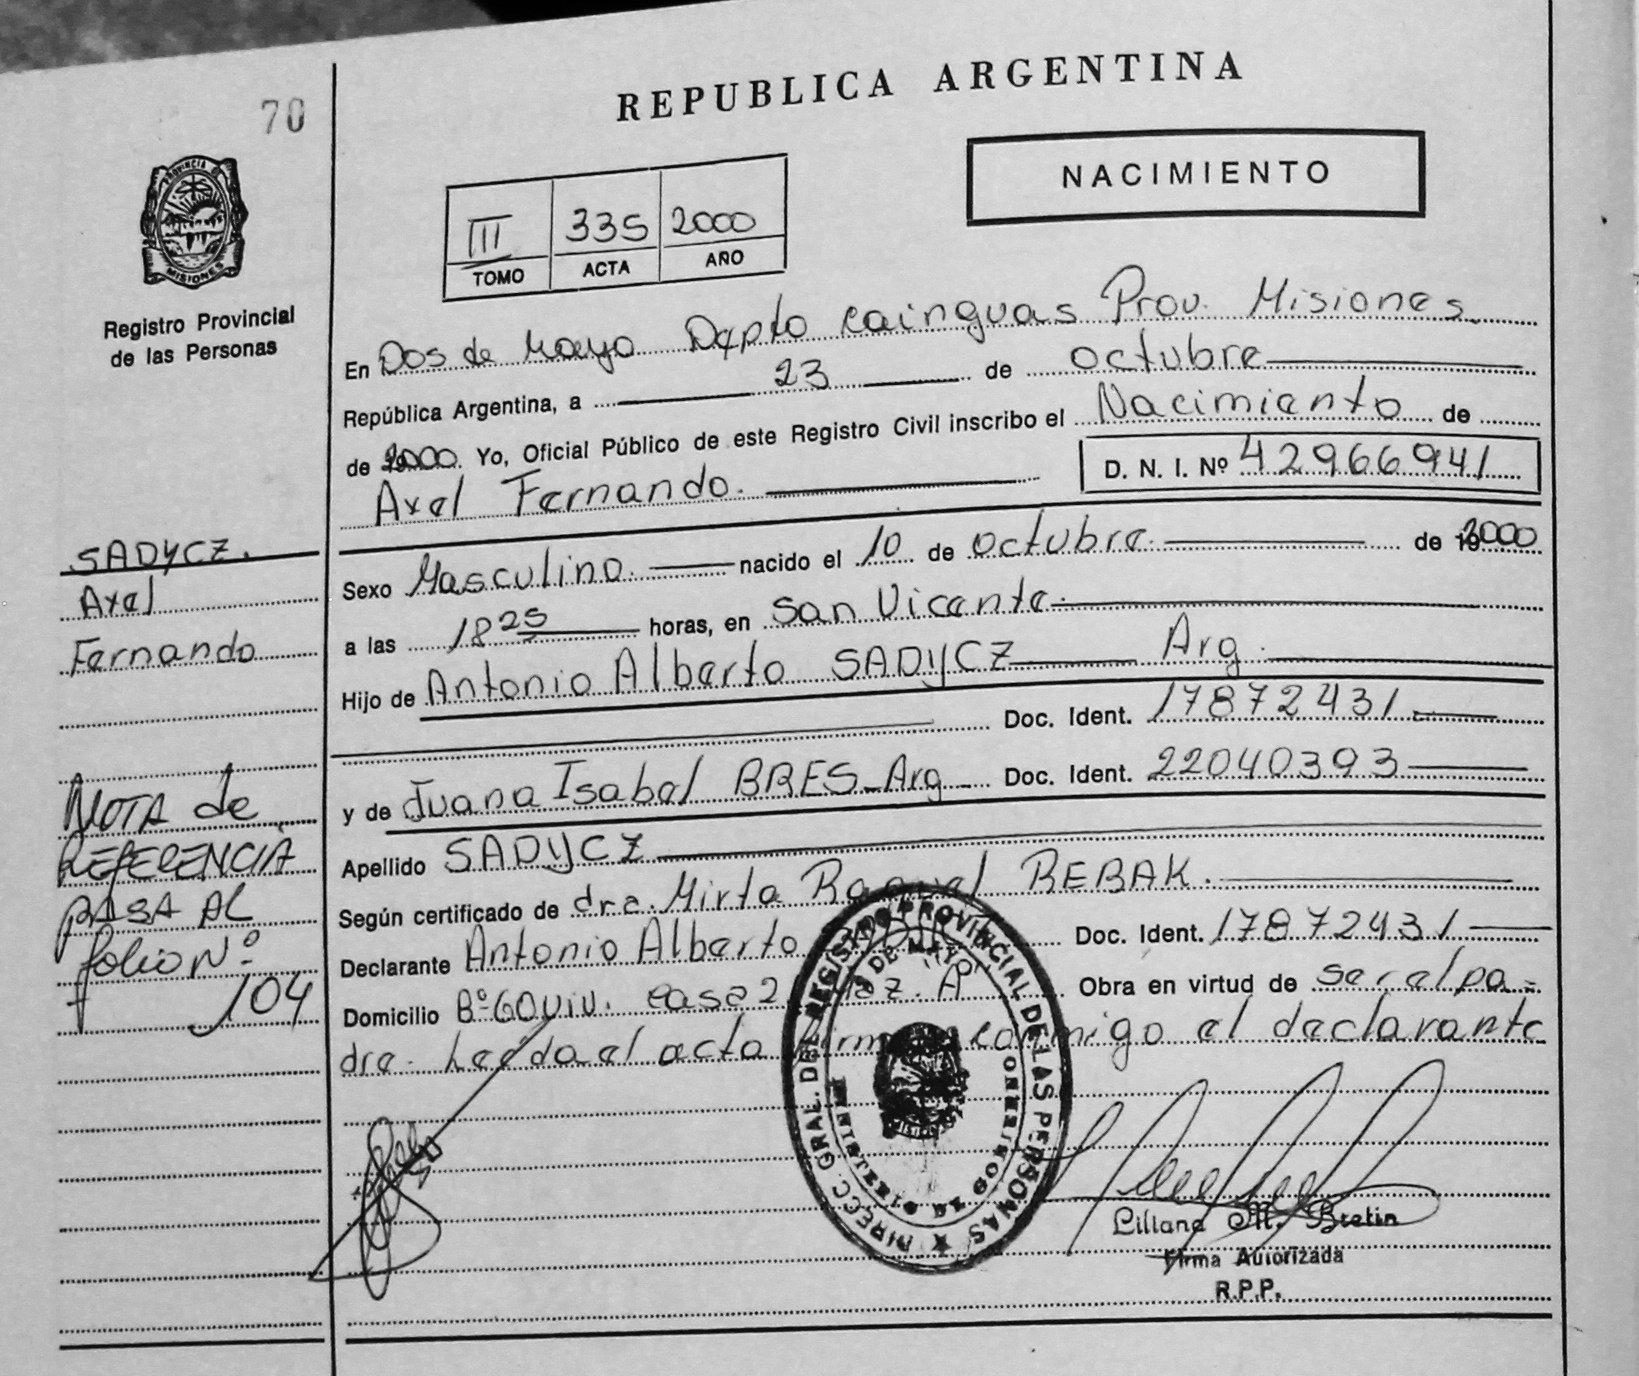 REPUBLICA ARGENTINA
70
NACIMIENTO
III 335 2000
TOMO ACTA AÑO
PROVINCIA DE MISIONES
Registro Provincial
de las Personas
En Dos de Mayo Depto Cainguas Prov. Misiones
República Argentina, a 23 de octubre
de 2000 Yo, Oficial Público de este Registro Civil inscribo el Nacimiento de
D. N. I. Nº 42966941
Axel Fernando.
SADYCZ.
Axel
Fernando
Sexo Masculino. nacido el 10 de octubre. de 2000
a las 18 25 horas, en San Vicente.
Hijo de Antonio Alberto SADYCZ Arg.
Doc. Ident. 17872431
y de Juana Isabel BRES_Arg_ Doc. Ident. 22040393
Apellido SADYCZ
Según certificado de dra. Mirta Raquel REBAK.
Declarante Antonio Alberto Doc. Ident. 17872431
Domicilio Bº 60 Viv. casa 2 Mz. A Obra en virtud de ser el pa=
dre. Leída el acta firma conmigo el declarante
NOTA de
REFERENCIA
PASA AL
folio Nº
104
DIRECC. GRAL. DEL REGISTRO PROVINCIAL DE LAS PERSONAS
2 DE MAYO
MINISTERIO DE GOBIERNO
Liliana M. Bretin
Firma Autorizada
R.P.P.